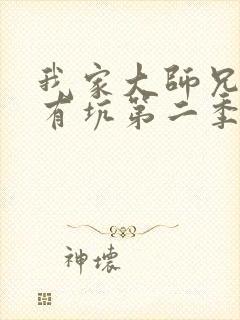 我家大師兄
有坑第二季
神壞